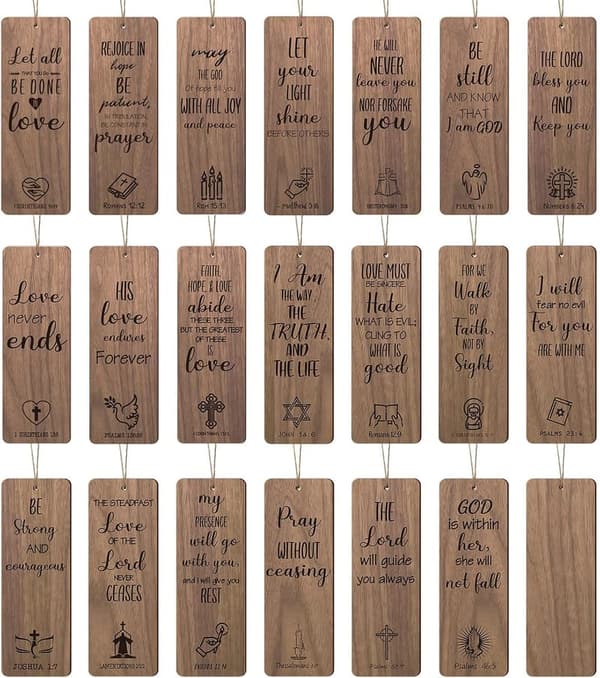 Let all
THAT YOU DO
BE DONE
IN
love
1 CORINTHIANS 16:14
REJOICE IN
hope
BE
patient,
IN TRIBULATION,
BE CONSTANT IN
prayer
Romans 12:12
may
THE GOD
Of hope fill you
WITH ALL JOY
and peace
Rom 15:13
LET
your
LIGHT
shine
BEFORE OTHERS
Matthew 5:16
HE WILL
NEVER
leave you
NOR FORSAKE
you
BE
still
AND KNOW
THAT
I am GOD
PSALMS 46:10
THE LORD
bless you
AND
Keep you
Numbers 6:24
Love
never
ends
1 CORINTHIANS 13:8
HIS
love
endures
Forever
FAITH,
HOPE, & LOVE
abide
THESE THREE,
BUT THE GREATEST
OF THESE
IS
love
I Am
THE WAY, THE
TRUTH,
AND
THE LIFE
JOHN 14:6
LOVE MUST
BE SINCERE.
Hate
WHAT IS EVIL;
CLING TO
WHAT IS
good
Romans 12:9
FOR WE
Walk
BY
Faith,
NOT BY
Sight
I will
fear no evil
For you
ARE WITH ME
PSALMS 23:4
BE
Strong
AND
courageous
JOSHUA 1:7
THE STEADFAST
Love
OF THE
Lord
NEVER
CEASES
my
PRESENCE
will go
with you,
and I will give you
REST
Pray
WITHOUT
ceasing
THE
Lord
will guide
you always
GOD
is within
her,
she will
not fall
Psalms 46:5